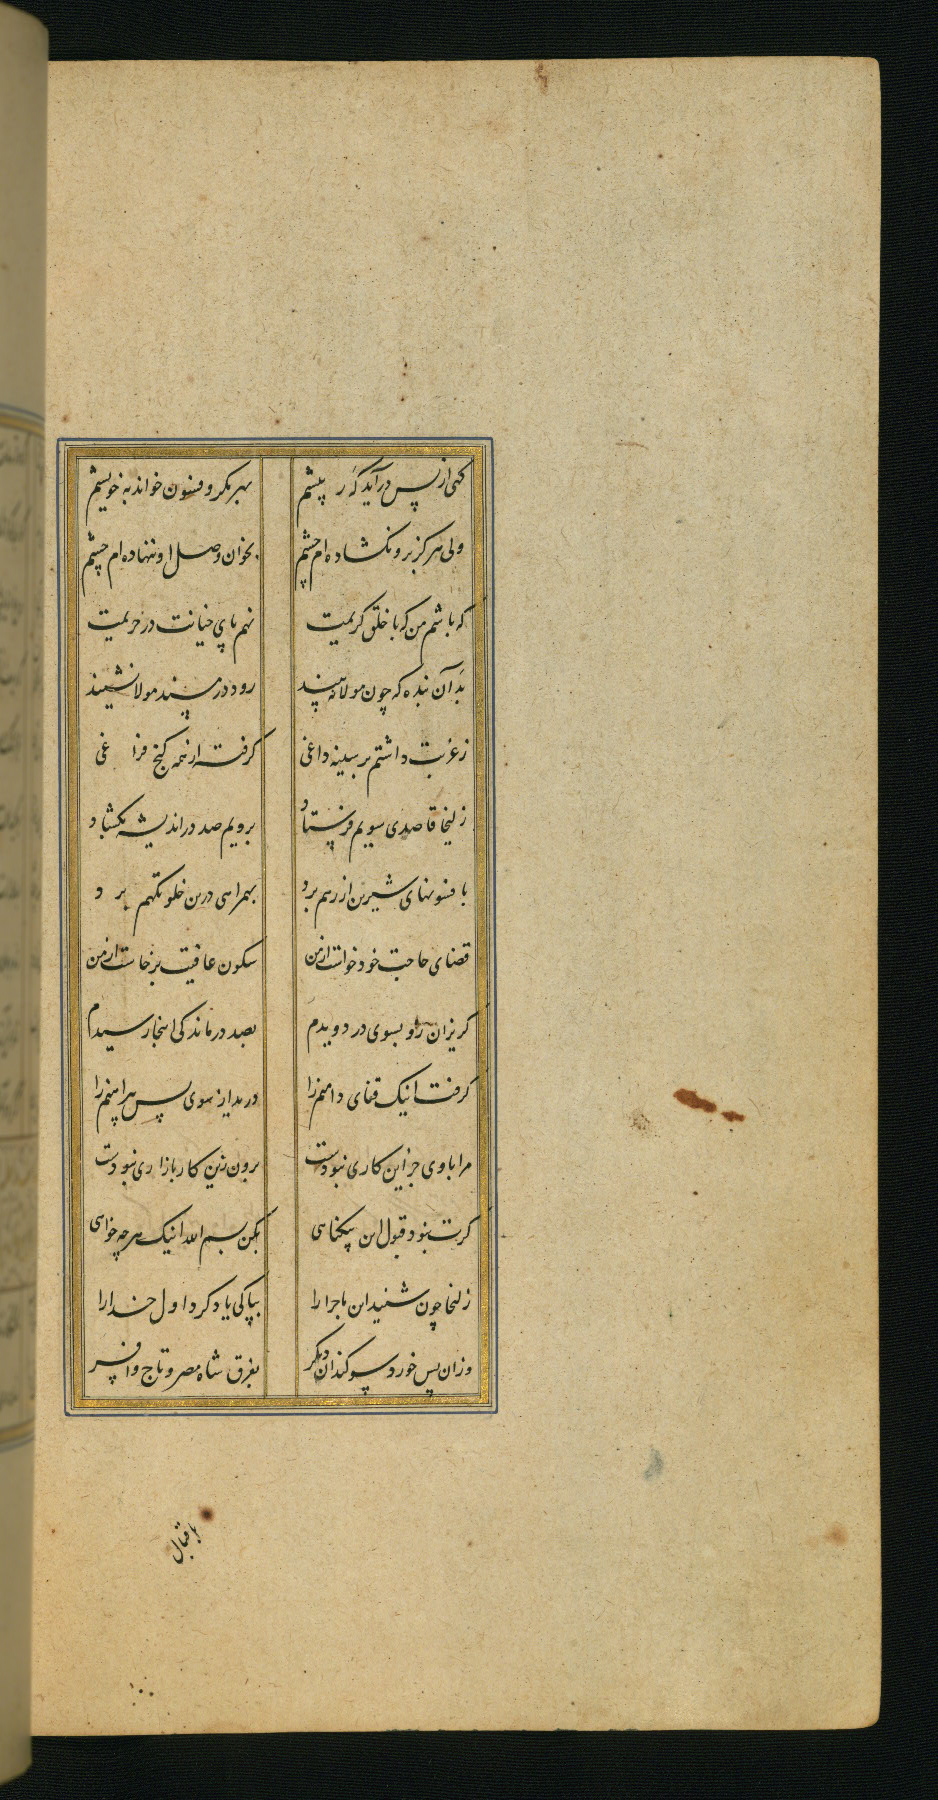 گهی از پس در آید گه ز پیشم بهر مکر و فسون خواند به خویشم
ولی هرگز برو نگشاده‌ام چشم بخوان وصل او ننهاده‌ام چشم
که باشم من که با خلق کریمت نهم پای خیانت در حریمت
بد آن بنده که چون مولا نه بیند رود در مسند مولا نشیند
ز غربت داشتم بر سینه داغی گرفته از همه کنج فراغی
زلیخا قاصدی سویم فرستاد برویم صد در اندیشه بگشاد
بافسونهای شیرین از رهم برد بهمراهی درین خلوتگهم برد
قضای حاجت خود خواست از من سکون عافیت برخاست از من
گریزان رو بسوی در دویدم بصد درماندگی اینجا رسیدم
گرفت اینک قفای دامنم را درید از سوی پس پیراهنم را
مرا با وی جز این کاری نبودست برون زین کار بازاری نبودست
گرت نبود قبول این بیگناهی بکن بسم الله اینک هر چه خواهی
زلیخا چون شنید این ماجرا را بپاکی یاد کرد اول خدا را
وزان پس خورد سوگندان دیگر بفرق شاه مصر و تاج و افسر
باقبال